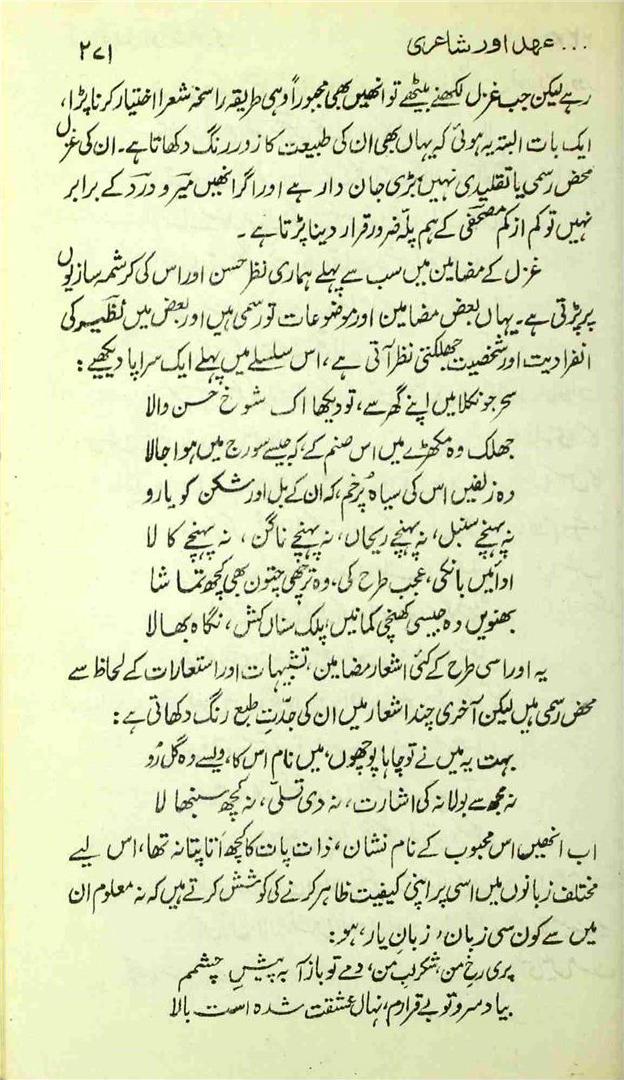 ... عہد اور شاعری ۲۷۱
رہے لیکن جب غزل لکھنے بیٹھے تو انھیں بھی مجبوراً وہی طریقہ راسخۂ شعرا اختیار کرنا پڑا،
ایک بات البتہ یہ ہوئی کہ یہاں بھی ان کی طبیعت کا زور رنگ دکھاتا ہے۔ ان کی غزل
محض رسمی یا تقلیدی نہیں بڑی جان دار ہے اور اگر انھیں میر و درد کے برابر
نہیں تو کم از کم مصحفی کے ہم پلّہ ضرور قرار دینا پڑتا ہے۔
غزل کے مضامین میں سب سے پہلے ہماری نظر حسن اور اس کی کرشمہ سازیوں
پر پڑتی ہے۔ یہاں بعض مضامین اور موضوعات تو رسمی ہیں اور بعض میں نظیر کی
انفرادیت اور شخصیت جھلکتی نظر آتی ہے، اس سلسلے میں پہلے ایک سراپا دیکھیے:
سحر جو نکلا میں اپنے گھر سے، تو دیکھا اک شوخ حسن والا
جھلک وہ مکھڑے میں اس صنم کے، کہ جیسے سورج میں ہو اجالا
وہ زلفیں اس کی سیاہ پُرخم، کہ ان کے بل اور شکن کو یارو
نہ پہنچے سنبل، نہ پہنچے ریحاں، نہ پہنچے ناگن، نہ پہنچے کالا
ادائیں بانکی، عجب طرح کی، وہ ترچھی چتون بھی کچھ تماشا
بھنویں وہ جیسی کھنچی کمانیں، پلک سناں کش، نگاہ بھالا
یہ اور اسی طرح کے کئی اشعار مضامین، تشبیہات اور استعارات کے لحاظ سے
محض رسمی ہیں لیکن آخری چند اشعار میں ان کی جدّتِ طبع رنگ دکھاتی ہے:
بہت یہ میں نے تو چاہا پوچھوں، میں نام اس کا، ویسے وہ گل رُو
نہ مجھ سے بولا نہ کی اشارت، نہ دی تسلّی، نہ کچھ سنبھالا
اب انھیں اس محبوب کے نام نشان، ذات پات کا کچھ اتا پتا نہ تھا، اس لیے
مختلف زبانوں میں اسی پر اپنی کیفیت ظاہر کرنے کی کوشش کرتے ہیں کہ نہ معلوم ان
میں سے کون سی زبان، زبانِ یار، ہو:
پری رخِ من، شکر لبِ من، دمے تو باز آ بہ پیشِ چشمم
بیاد سرو تو بے قرارم، نہال عشقت شدہ است بالا